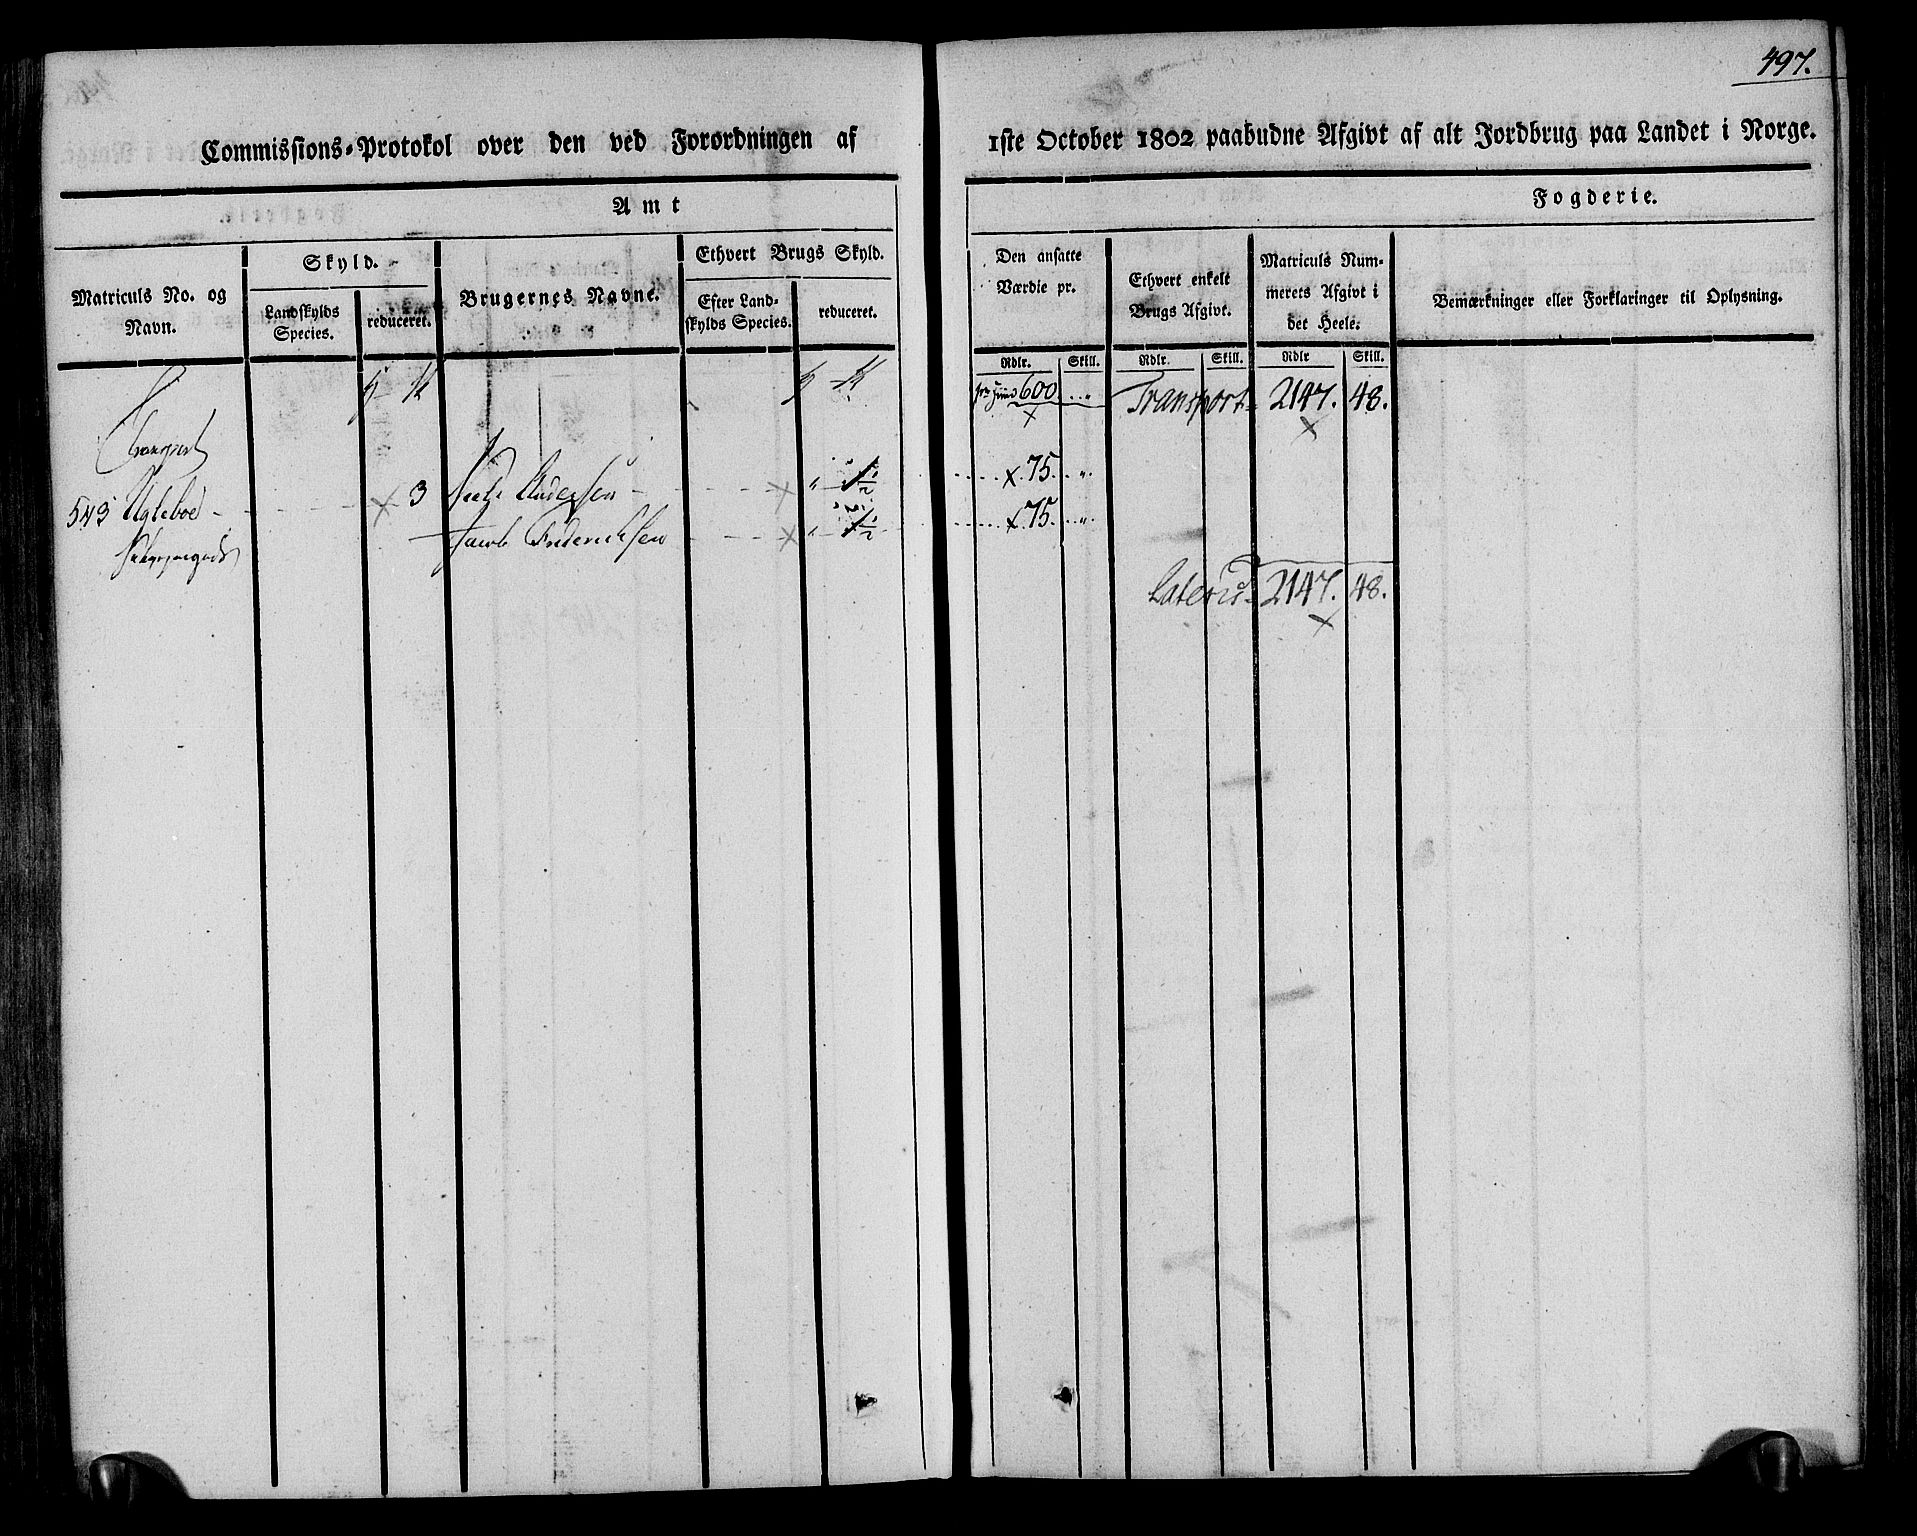 497.
Commissions-Protokol over den ved Forordningen af 1ste October 1802 paabudne Afgivt af alt Jordbrug paa Landet i Norge.
Amt
Fogderie.
Matriculs No. og Navn.
Skyld.
Landskylds Species.
reduceret.
Brugernes Navne.
Ethvert Brugs Skyld.
Efter Landskylds Species.
reduceret.
Den ansatte Værdie pr.
Rdlr. Skill.
Ethvert enkelt Brugs Afgivt.
Rdlr. Skill.
Matriculs Nummerets Afgivt i det Heele.
Rdlr Skill.
Bemærkninger eller Forklaringer til Oplysning.
Transport
600 „ Transport 2147. 48.
543 Ugleboe 3 Andersen „ 1½ 75 „
Jacob Frederichsen „ 1½ 75 „
Lateris 2147. 48.